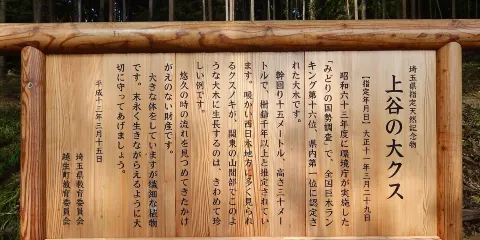 埼玉県指定天然記念物
上谷の大クス
［指定年月日］大正十一年三月二十九日
昭和六十三年度に環境庁が実施した
「みどりの国勢調査」で、全国巨木ラン
キング第十六位、県内第一位に認定さ
れた大木です。
幹回り十五メートル、高さ三十メー
トルで、樹齢千年以上と推定されてい
ます。暖かい西日本地方に多く見られ
るクスノキが、関東の山間部でこのよ
うな大木に生長するのは、きわめて珍
しい例です。
悠久の時の流れを見つめてきたかけ
がえのない財産です。
大きな体をしていますが繊細な植物
です。末永く生きながらえるように大
切に守ってあげましょう。
平成十三年三月十五日
埼玉県教育委員会
越生町教育委員会